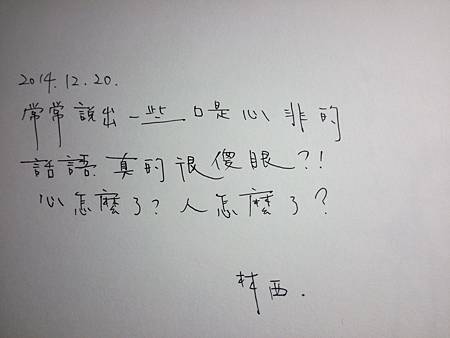 2014.12.20.
常常說出一些口是心非的
話語真的很傻眼?!
心怎麼了?人怎麼了?
林西.